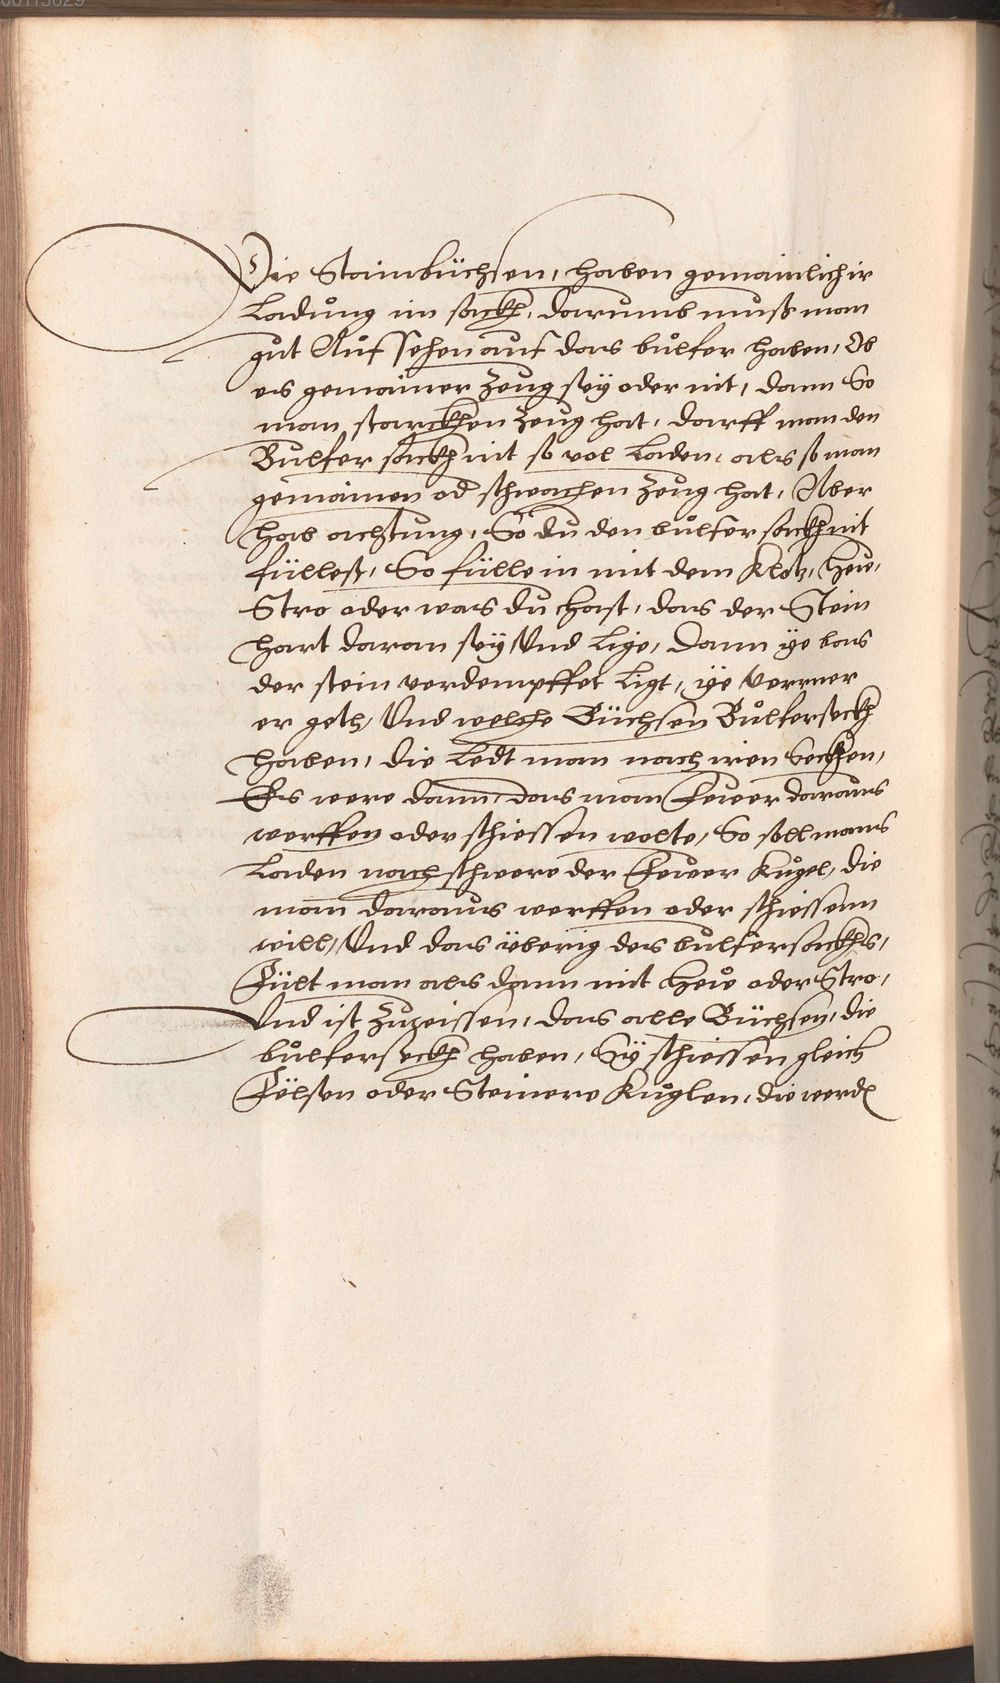 Die Stainbüchsen, haben gemainlich ir
Ladůng im sackh, darumb muß man
gůt Aůfsehen auf das bůlfer haben, Ob
es gemainer Zeug sey oder nit, dann So
man starckhen Zeug hat, darff man den
Bulfer sackh nit so vol Laden, als so man
gemainen od schwachen Zeug hat, Aber
hab achtung, So du den bůlfersackh nit
füllest, So fülle in mit dem Klotz, hew,
Stro oder was du hast, das der Stein
hart daran sey Und Lige, dann ye bas
der stein verdempffet Ligt, ye verrner
er geth, Und welche Büchsen Bůlferseckh
haben, die Ledt man nach iren Seckhen,
Es were dann, das man Fewer daraus
werffen oder schiessen wolte, So soll mans
Laden nach schwere der Fewer Kugel, die
man daraus werffen oder schiessenn
will, Und das überig des bulfersackhs,
Fült man als dann mit hew oder Stro,
Und ist Zuwissen, das alle Büchsen, die
bůlferseckh haben, Sy schiessen gleich
Eÿsen oder Steinere Kuglen, die werd